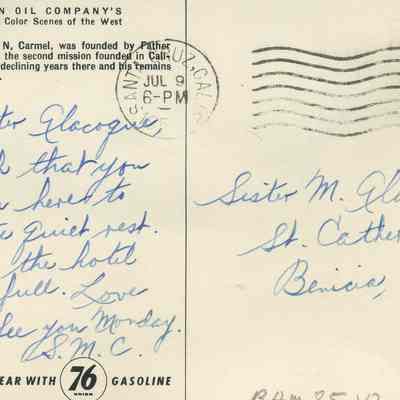 N OIL COMPANY'S
Color Scenes of the West
N, Carmel, was founded by Father
the second mission founded in Cali-
declining years there and his remains
SANTA CRUZ, CALIF.
JUL 9
6-PM
ter Alacoque,
that you
here to
quiet rest.
the hotel
full. Love
See you Monday.
S.M.C.
EAR WITH 76 GASOLINE
UNION
Sister M. Ala
St. Cather
Benicia,